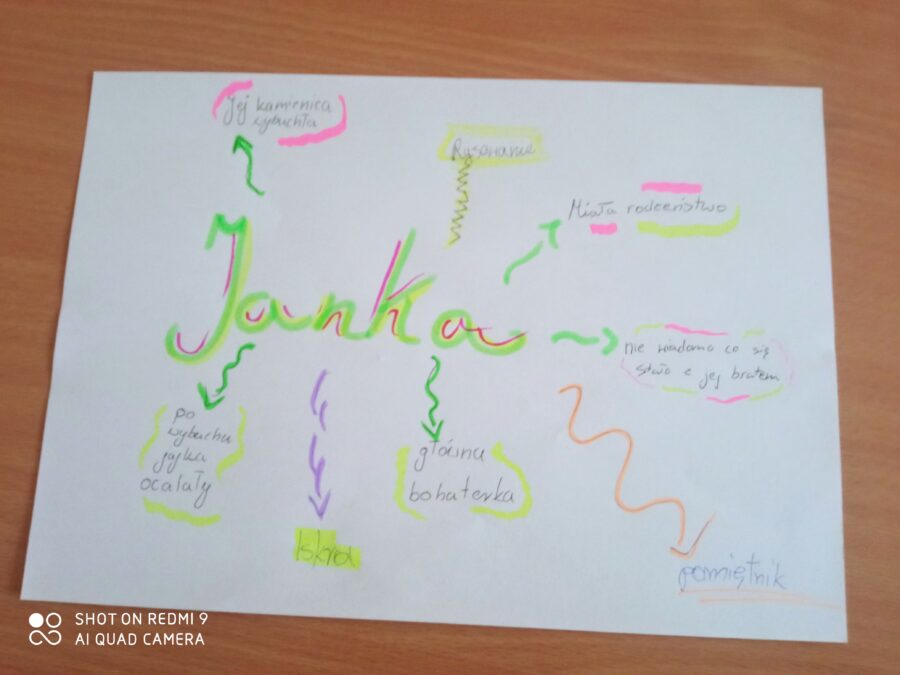 Jej kamienica
wybuchła
Rysowanie
Miała rodzeństwo
Janka
nie wiadomo co się
stało z jej bratem
po
wybuchu
jajka
ocalały
główna
bohaterka
Iskra
pamiętnik
SHOT ON REDMI 9
AI QUAD CAMERA